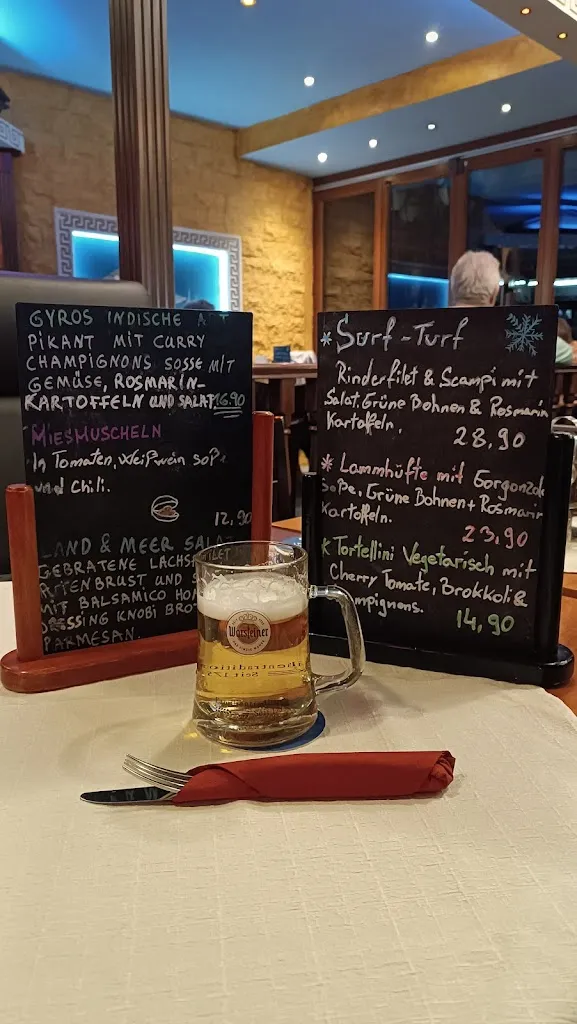 GYROS INDISCHE ART
PIKANT MIT CURRY
CHAMPIGNONS SOSSE MIT
GEMÜSE, ROSMARIN-
KARTOFFELN UND SALAT 16.90
MIESMUSCHELN
In Tomaten, Weißwein soße
und Chili.
12,90
LAND & MEER SALAT
GEBRATENE LACHSFILET
PUTENBRUST UND
MIT BALSAMICO HO
DRESSING KNOBI BROT
PARMESAN.
* Surf-Turf
Rinderfilet & Scampi mit
Salat. Grüne Bohnen & Rosmarin
Kartoffeln.
28,90
* Lammhüfte mit Gorgonzola
Soße, Grüne Bohnen + Rosmarin
Kartoffeln.
23,90
* Tortellini Vegetarisch mit
Cherry Tomate, Brokkoli &
Champignons.
14,90
Warsteiner
Seit 17